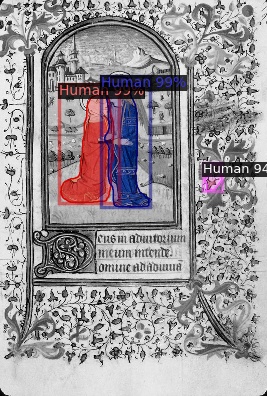 Human 99%
Human 99%
Human 94
Deus in adiutorium
meum intende
omine ad adiuua